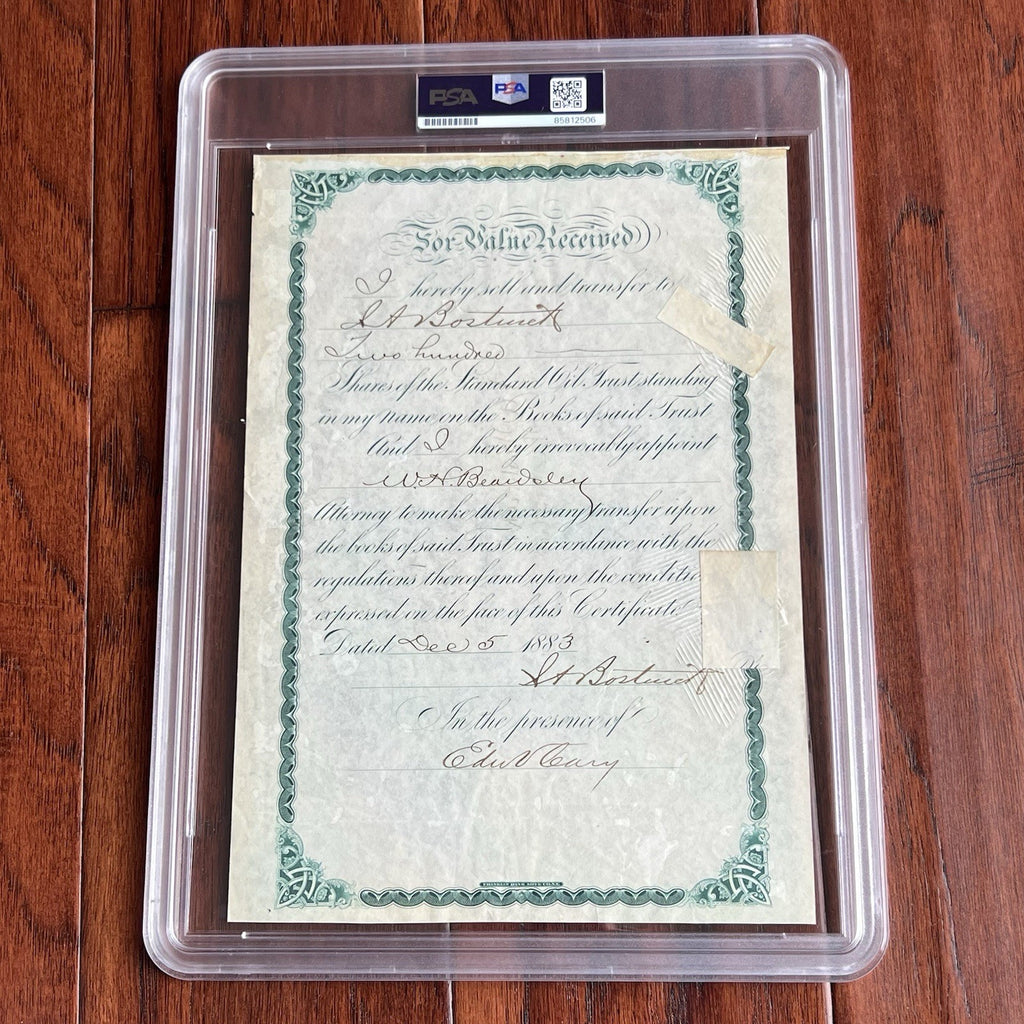 PSA
PSA
85812506
For Value Received
I hereby sell and transfer to
Two hundred
Shares of the Standard Oil Trust standing
in my name on the Books of said Trust
And I hereby irrevocably appoint
W.H. Beardsley
Attorney to make the necessary transfer upon
the books of said Trust in accordance with the
regulations thereof and upon the conditio
expressed on the face of this Certificate
Dated Dec 5 1883
In the presence of